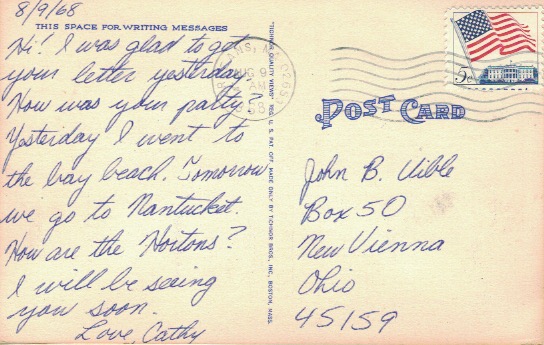 8/9/68
THIS SPACE FOR WRITING MESSAGES
Hi! I was glad to get
your letter yesterday.
How was your party?
Yesterday I went to
the bay beach. Tomorrow
we go to Nantucket.
How are the Hortons?
I will be seeing
you soon.
Love, Cathy
"TICHNOR QUALITY VIEWS" REG. U. S. PAT. OFF. MADE ONLY BY TICHNOR BROS., INC., BOSTON, MASS.
AUG 9
AM
5c
POST CARD
John B. Uible
Box 50
New Vienna
Ohio
45159